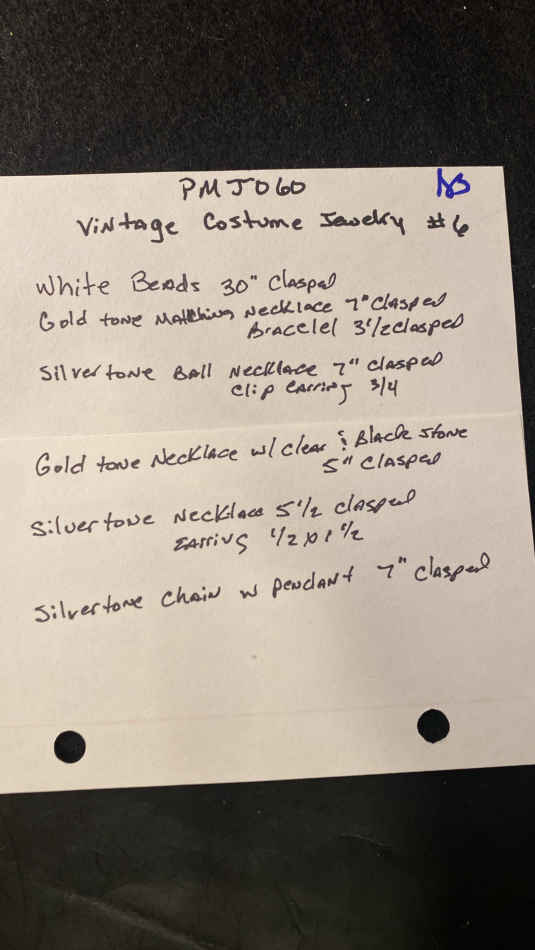 PMJ060
Vintage Costume Jewelry #6
White Beads 30" Clasped
Gold tone Matching Necklace 7" Clasped
Bracelet 3 1/2 clasped
Silvertone Ball Necklace 7" clasped
Clip Earring 3/4
Gold tone Necklace w/ clear & Black Stone
5" Clasped
Silvertone Necklace 5 1/2 clasped
Earring 1/2 x 1 1/2
Silvertone Chain w pendant 7" clasped